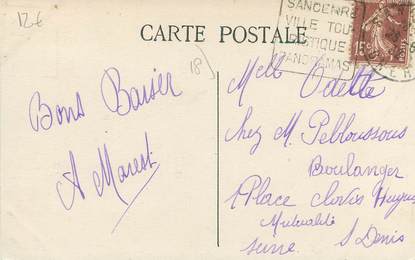 12€
CARTE POSTALE
SANCERRE
VILLE TOU
ISTIQUE
PANORAMAS
15c
18
Bons Baiser
A Marest
Mell Odette
Chez M. Pebloussous
Boulanger
1 Place Clovis Hugues
Mutualité
S Denis
Seine